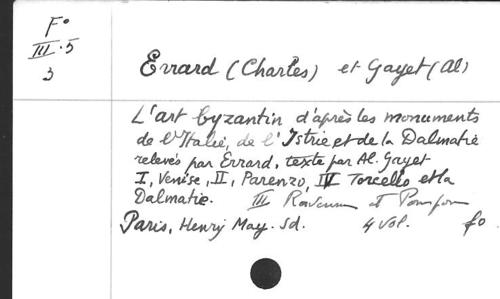 Fº
III.5
3
Errard (Charles) et Gayet (Al)
L'art byzantin d'après les monuments
de l'Italie, de l'Istrie et de la Dalmatie
relevés par Errard, texte par Al. Gayet
I, Venise, II, Parenzo, IV Torcello et la
Dalmatie. III Ravenne et Pomposa
Paris, Henry May. Sd. 4 vol. fº